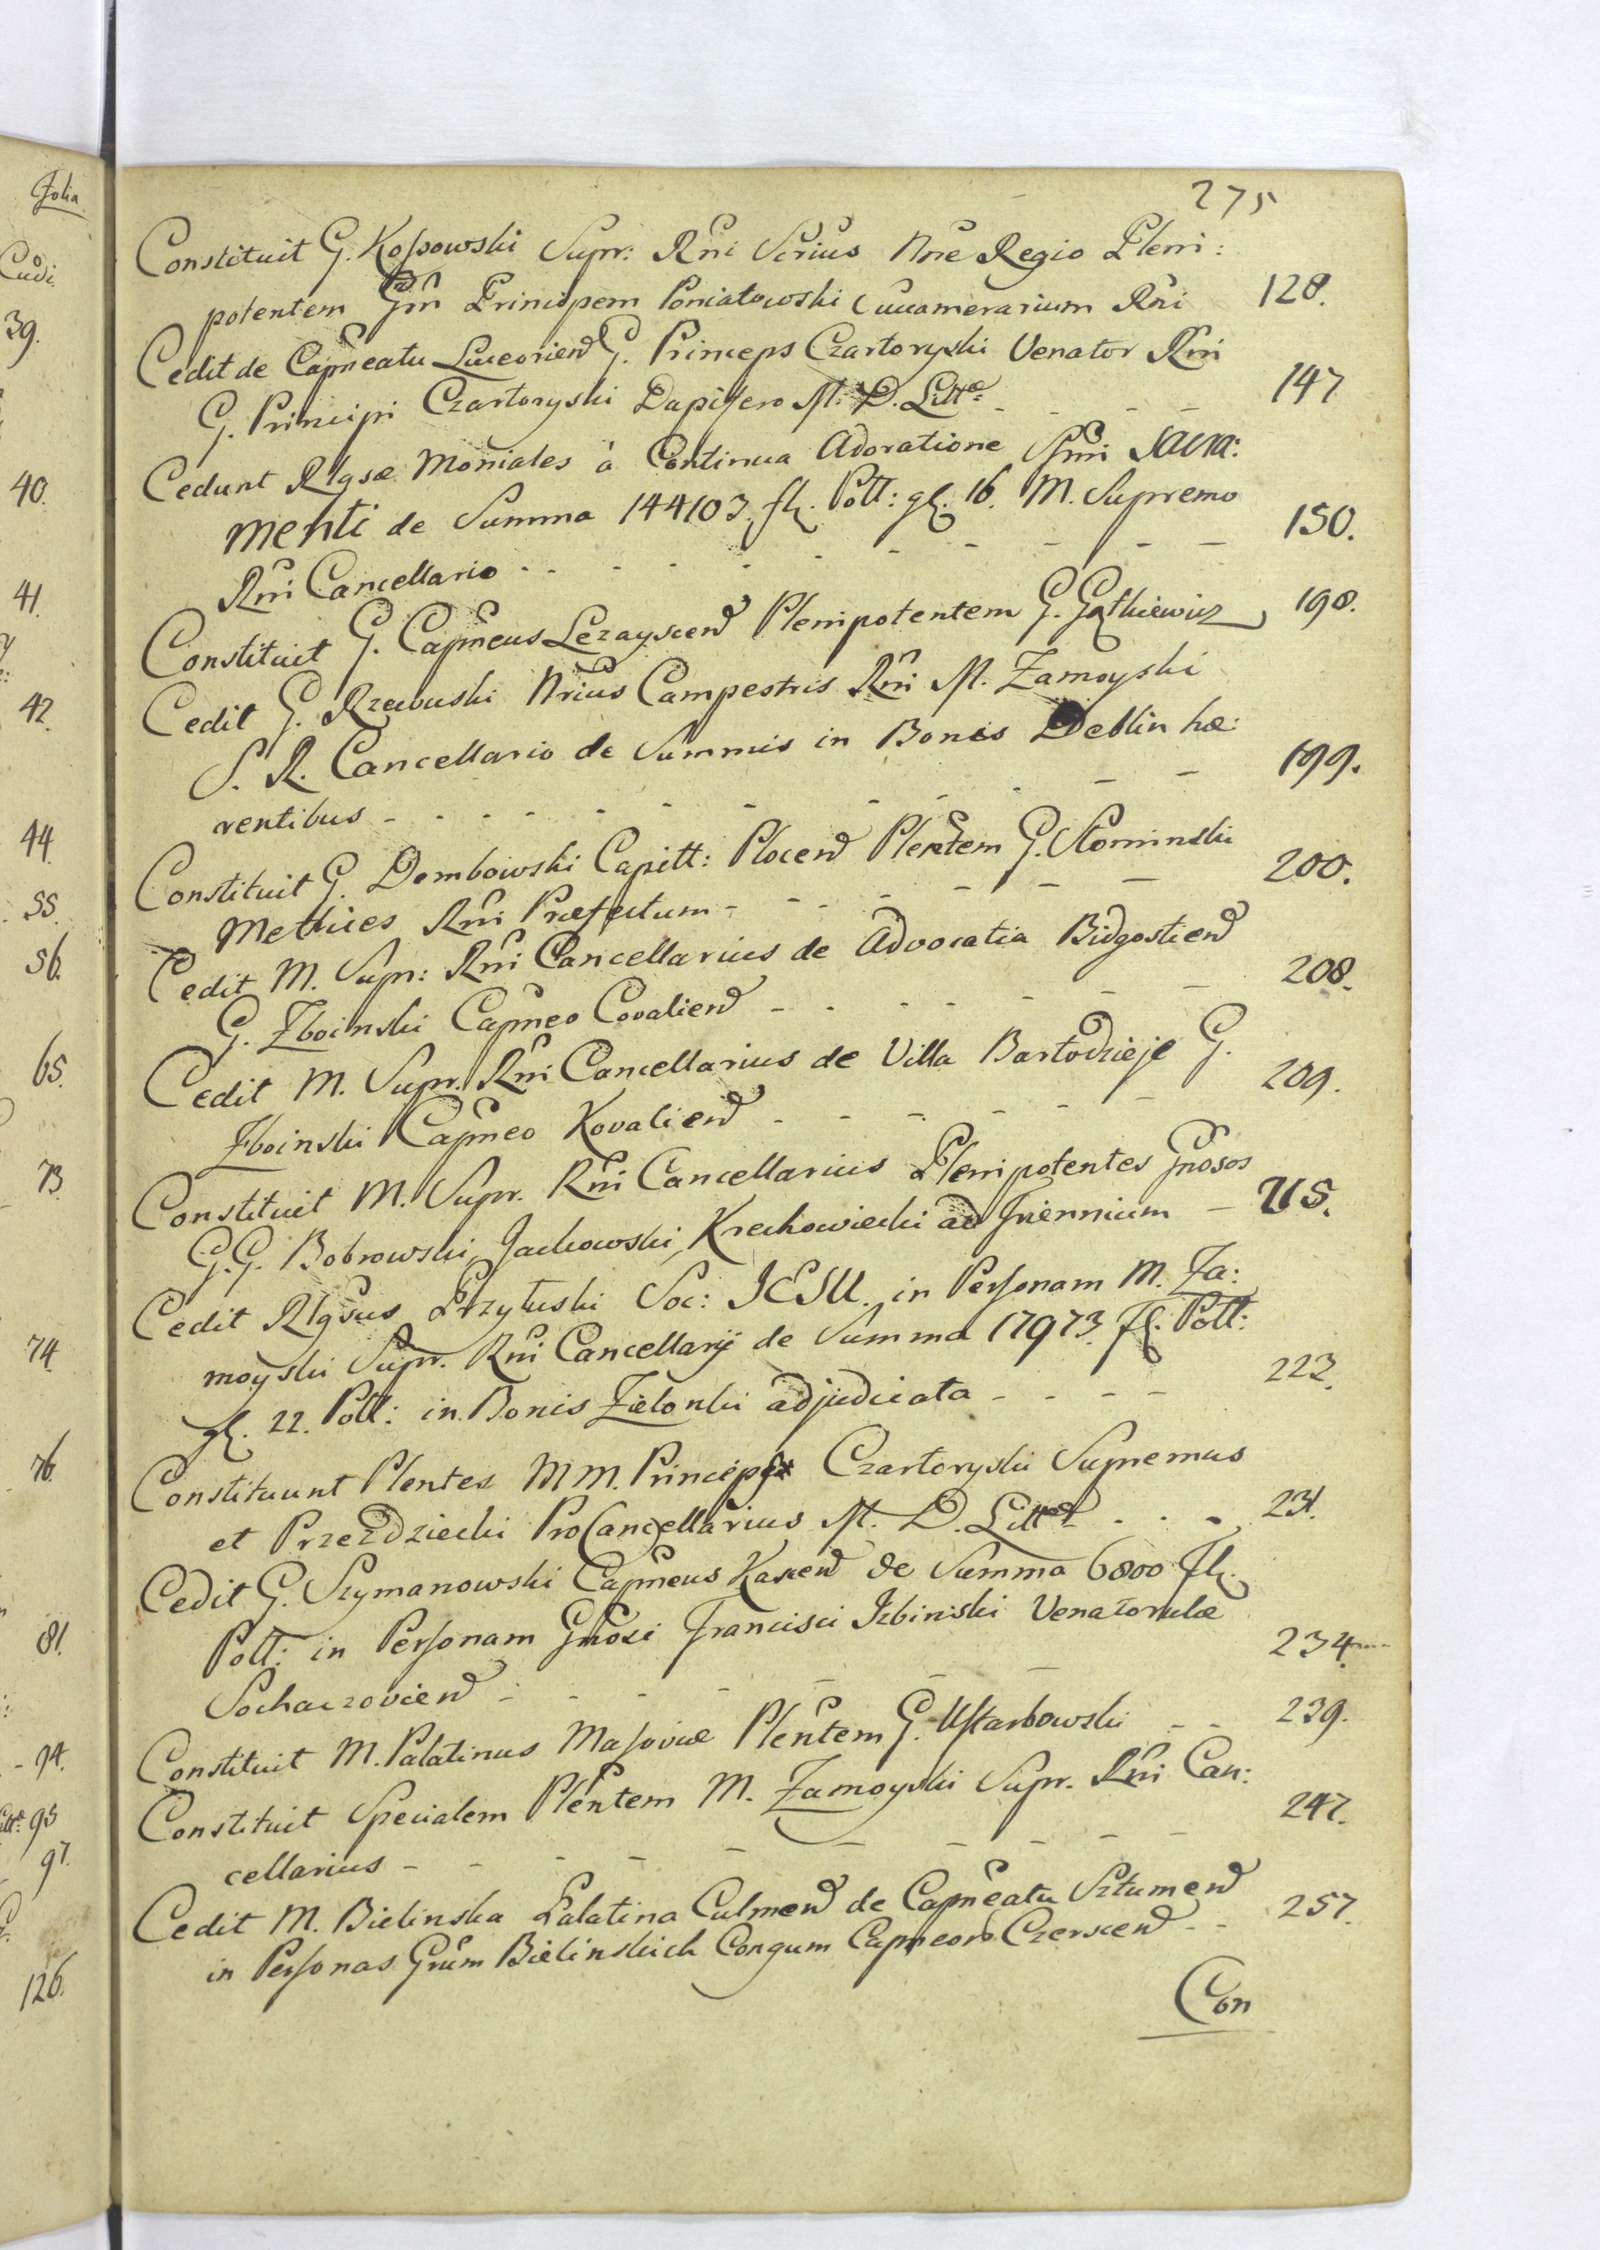 275
Constituit G. Kossowski Supr: Rñi Scrius Nñe Regio Pleni:
potentem Gm̃ Principem Poniatowski Succamerarium Rñi 128.
Cedit de Capñeatu Luceorien G. Princeps Czartoryski Venator Rñi
G. Principi Czartoryski Dapifero M: D. Littæ - - - - 147
Cedunt Rlgsæ Moniales à Continua Adoratione Ssmi Sacra:
menti de Summa 144103. fl. Poll: gl. 16. M. Supremo
Rñi Cancellario - - - - - - - - - 150.
Constituit G. Capñeus Lezayscen Plenipotentem G. Gotkiewicz 198.
Cedit G. Rzewuski Nrius Campestris Rñi M. Zamoyski
S. R. Cancellario de Summis in Bonis Deblin hæ:
rentibus - - - - - - - - - - - 199.
Constituit G. Dembowski Capitt: Plocen Plentem G. Slominski
Methices Rñi Præfectum - - - - - - 200.
Cedit M. Supr: Rñi Cancellarius de Advocatia Bidgostien
G. Zboinski Capñeo Covalien - - - - - - - 208.
Cedit M. Supr. Rñi Cancellarius de Villa Bartodzieje G.
Zboinski Capñeo Kovalien - - - - - - 209.
Constituit M. Supr. Rñi Cancellarius Plenipotentes Gnosos
G.G. Bobrowski, Jackowski, Krechowiecki ad Triennium - 215.
Cedit Rlgsus Przyłuski Soc: JESU. in Personam M. Za:
moyski Supr. Rñi Cancellarÿ de Summa 17973. fl. Poll:
gl. 22. Poll: in Bonis Zielonki adjudicata - - - - 223.
Constituunt Plentes MM. Princeps Czartoryski Supremus
et Przezdziecki ProCancellarius M. D. Litt - - - 231.
Cedit G. Szymanowski Capñeus Kascen de Summa 6800 Fl.
Poll: in Personam Gnosi Francisci Izbinski Venatoridæ
Sochaczovien - - - - - - - 234.
Constituit M. Palatinus Masoviæ Plentem G. Uskarbowski - - 239.
Constituit Specialem Plentem M. Zamoyski Supr. Rñi Can:
cellarius - - - - - - - - - 247.
Cedit M. Bielinska Palatina Culmen de Capñeatu Sztumen
in Personas Grum Bielinskich Congum Capneor Czerscen - - 257.
Con
Folia
39.
40.
41.
42.
44.
55.
56.
65.
73.
74.
76.
81.
94.
95
97.
126.